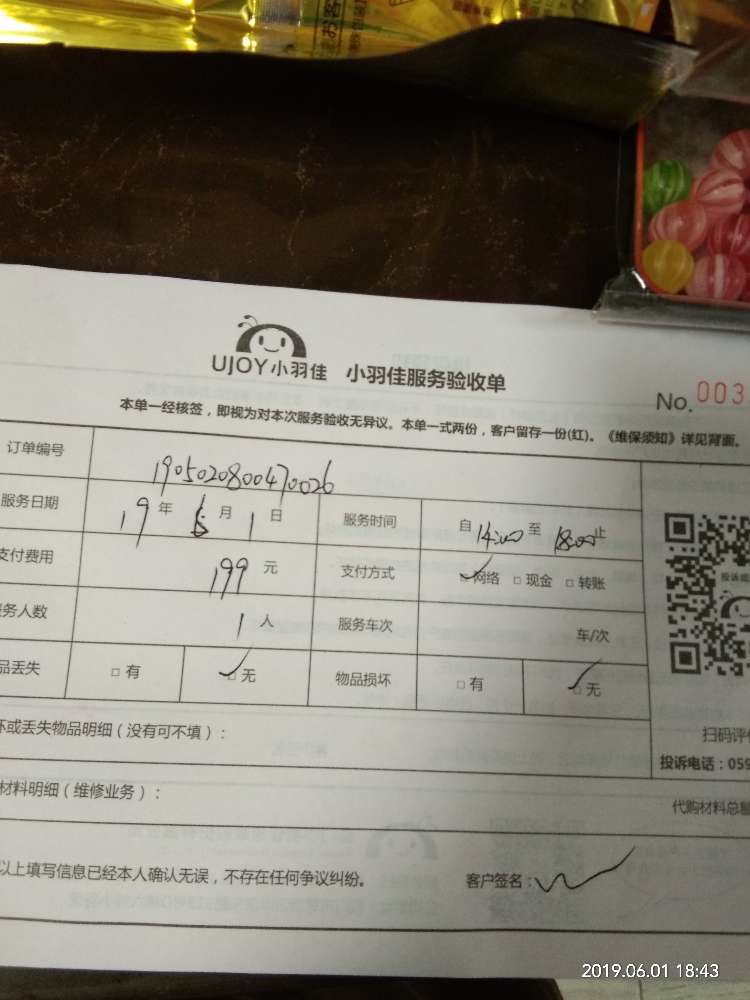 UJOY小羽佳 小羽佳服务验收单
No. 003
本单一经核签，即视为对本次服务验收无异议。本单一式两份，客户留存一份(红)。《维保须知》详见背面。
订单编号 190502800470026
服务日期 19年 6月 1日 服务时间 自14:00至18:00止
支付费用 199元 支付方式 网络 现金 转账
务人数 1人 服务车次 车/次
品丢失 有 无 物品损坏 有 无
坏或丢失物品明细（没有可不填）：
扫码评价
投诉电话：059
材料明细（维修业务）：
代购材料总额
以上填写信息已经本人确认无误，不存在任何争议纠纷。
客户签名：
2019.06.01 18:43